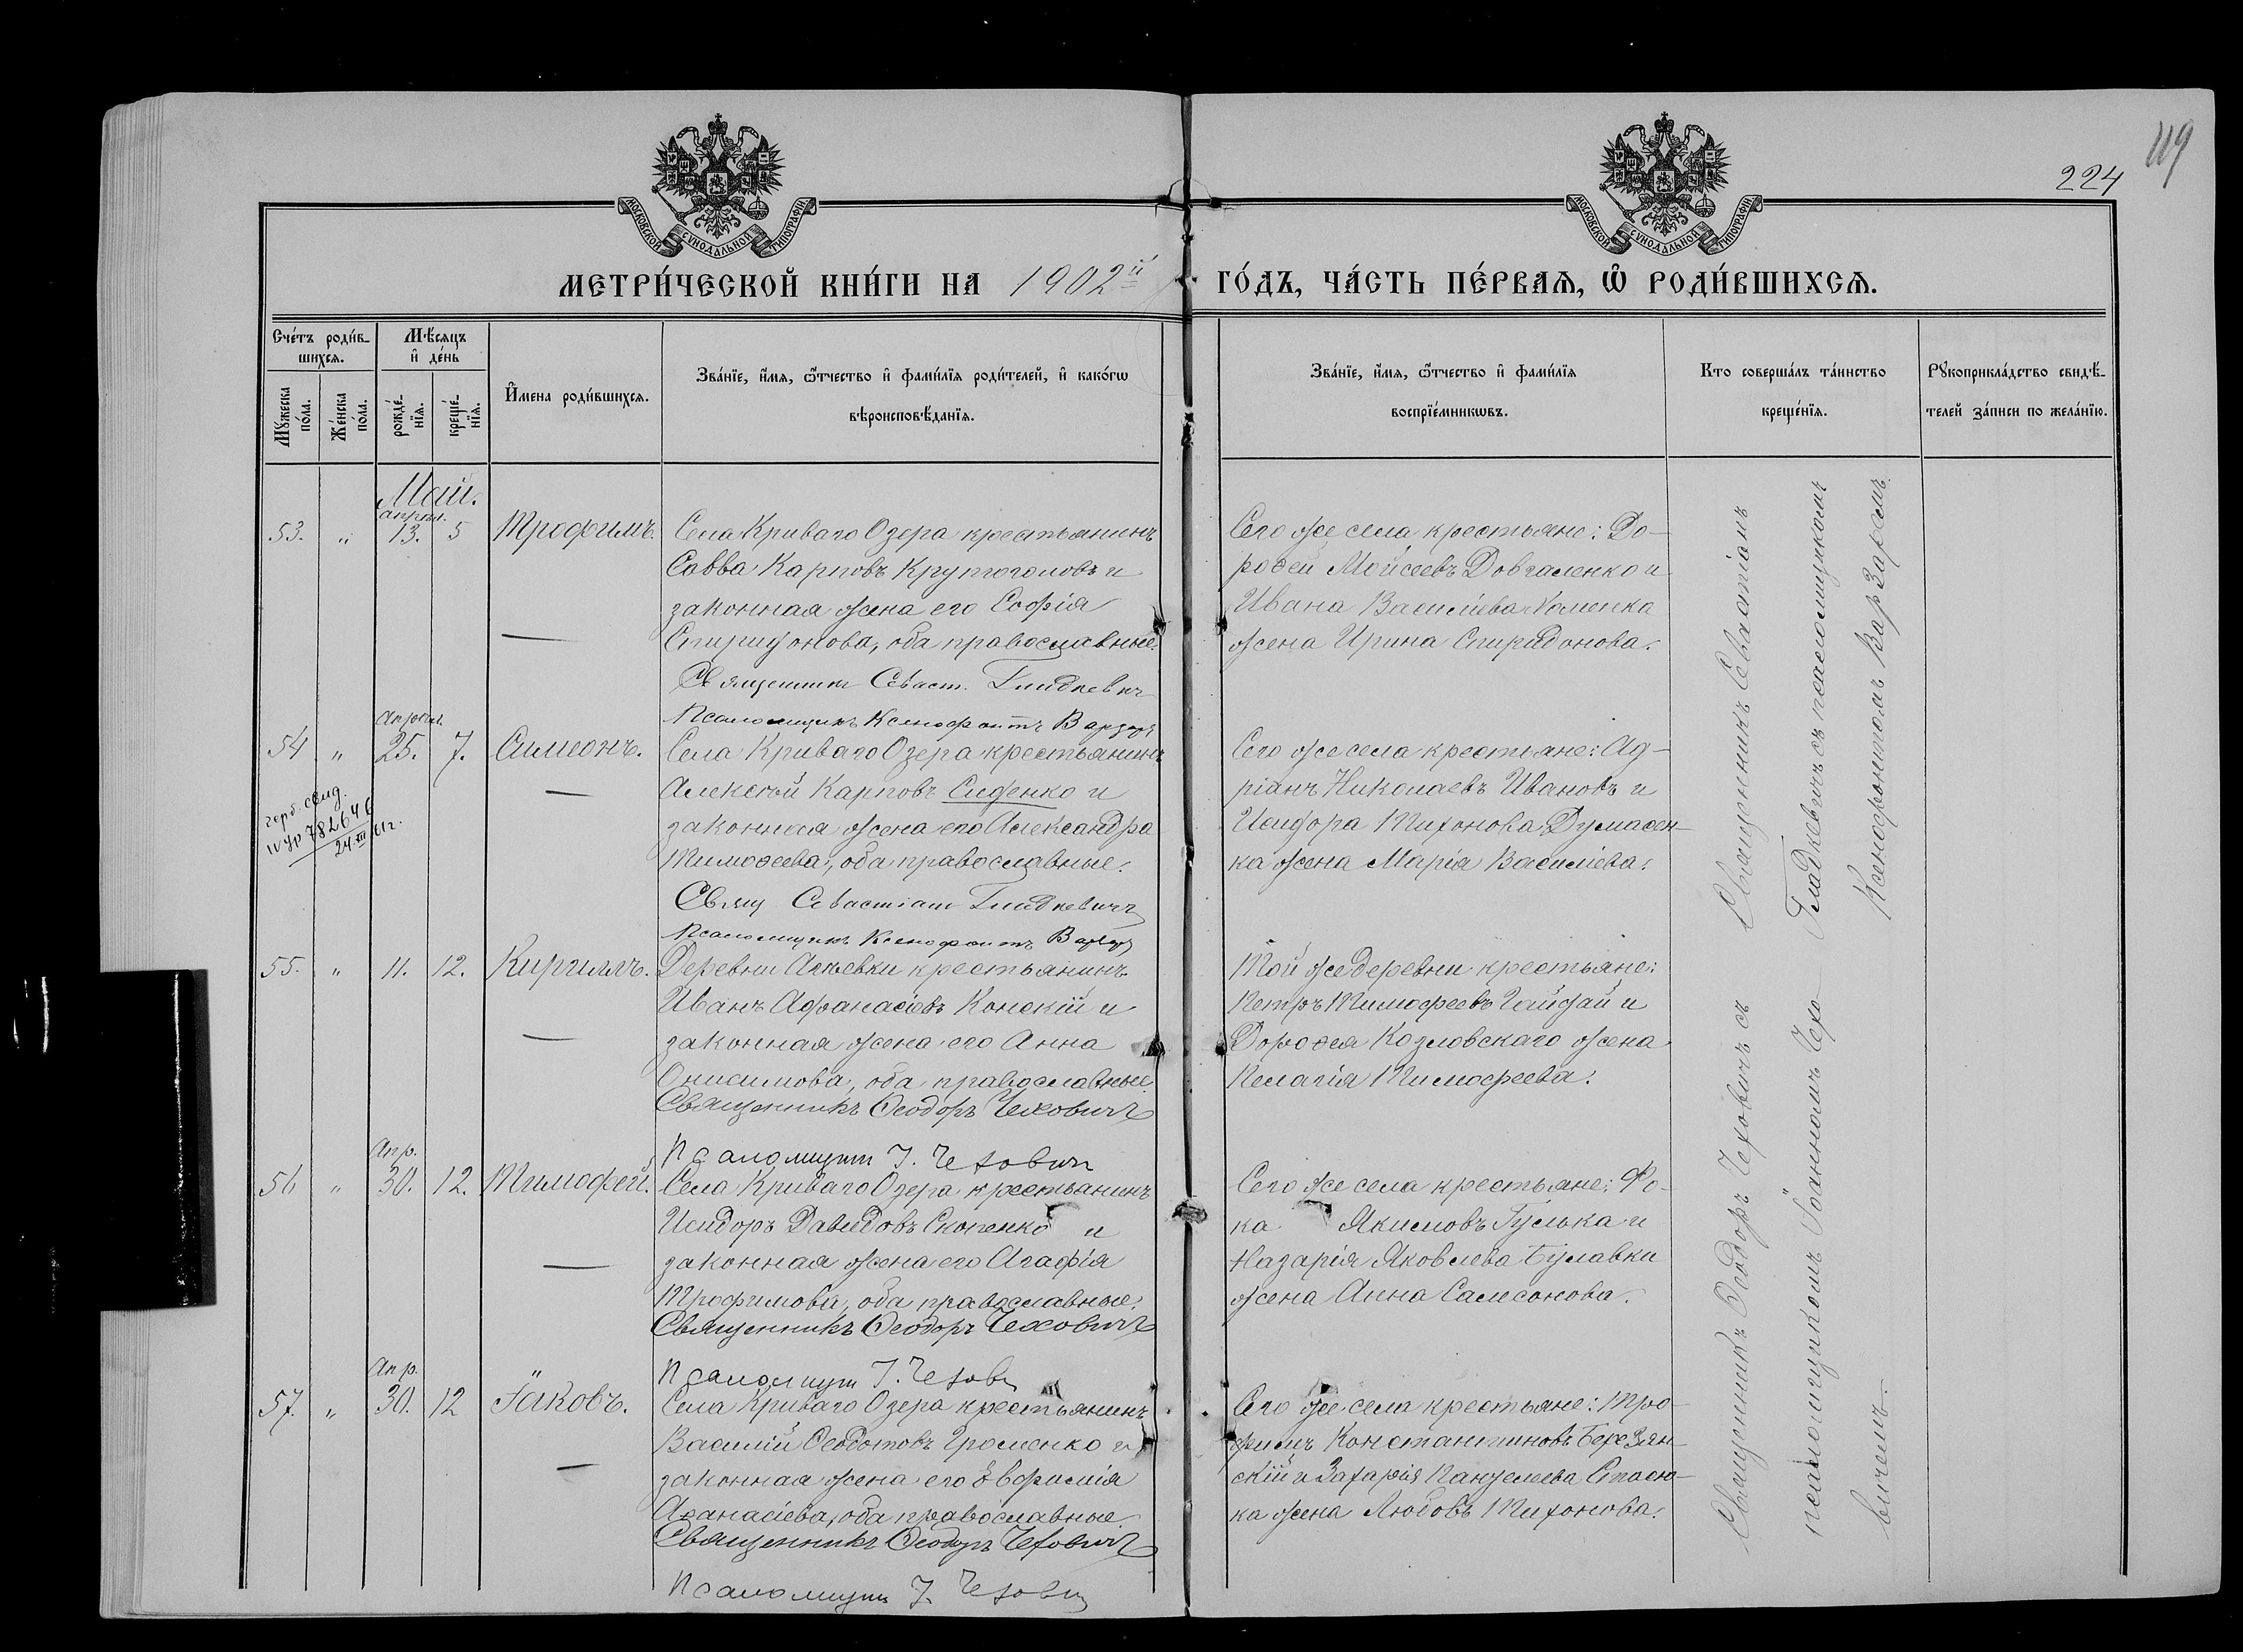 119
224
МОСКОВСКОЙ СѴНОДАЛЬНОЙ ТИПОГРАФІИ
МОСКОВСКОЙ СѴНОДАЛЬНОЙ ТИПОГРАФІИ
МЕТРИ́ЧЕСКОЙ КНИ́ГИ НА 1902й ГО́ДЪ, ЧА́СТЬ ПЕ́РВАѦ, Ѡ РОДИ́ВШИХСѦ.
Сче́тъ роди́в-
шихсѧ.
Мꙋ́жеска
по́ла.
Же́нска
по́ла.
Мѣ́сѧцъ
и҆ де́нь
рожде́-
нїѧ.
креще́-
нїѧ.
И҆мена роди́вшихсѧ.
Зва́нїе, и҆́мѧ, ѻ҆́тчество и҆ фами́лїѧ роди́телей, и҆ како́гѡ
вѣроисповѣ́данїѧ.
Зва́нїе, и҆́мѧ, ѻ҆́тчество и҆ фами́лїѧ
воспрїе́мникѡвъ.
Кто соверша́лъ та́инство
креще́нїѧ.
Рꙋкоприкла́дство свидѣ́-
телей за́писи по жела́нїю.
Май.
апрѣл.
53. " 13. 5 Трофимъ.
Села Криваго Озера крестьянинъ
Савва Карповъ Крутоголовъ и
законная жена его Софія
Спиридонова, оба православные.
Священникъ Севаст. Гладкевичъ
Псаломщикъ Ксенофонтъ Варзаръ
Сего же села крестьяне: До-
роѳей Мойсеевъ Довгаленко и
Ивана Василіева Хоменка
жена Ирина Спиридонова.
Апрѣл.
54 " 25. 7. Симеонъ.
герб. свид.
782646
24.XII 61 г.
Села Криваго Озера крестьянинъ
Алексѣй Карповъ Сиденко и
законная жена его Александра
Тимоѳеева, оба православные.
Свящ Севастіанъ Гладкевичъ
Псаломщикъ Ксенофонтъ Варзаръ
Сего же села крестьяне: Ад-
ріанъ Николаевъ Ивановъ и
Исидора Тихонова Думасен-
ка жена Марія Василіева.
Священникъ Севастіанъ
Гладкевичъ съ псаломщикомъ
Ксенофонтомъ Варзаромъ
55. " 11. 12. Кириллъ.
Деревни крестьянинъ
Иванъ Афанасіевъ Конскій и
законная жена его Анна
Онисимова, оба православные.
Священникъ Ѳеодоръ Чеховичъ
Псаломщикъ І. Чеховичъ
Той же деревни крестьяне:
Петръ Тимофеевъ Гайдай и
Дороѳея Козловскаго жена
Пелагія Тимофеева.
Апр.
56 " 30. 12. Тимофей.
Села Криваго Озера крестьянинъ
Исидоръ Давидовъ Скопенко и
законная жена его Агафія
Трофимова, оба православные.
Священникъ Ѳеодоръ Чеховичъ
Псаломщикъ І. Чеховичъ
Сего же села крестьяне: Фо-
ка Якимовъ Гулька и
Назарія Яковлева Булавки
жена Анна Самсонова.
Апр.
57. " 30. 12 Іаковъ.
Села Криваго Озера крестьянинъ
Василій Ѳеодотовъ Громенко и
законная жена его Евфимія
Аѳанасіева, оба православные.
Священникъ Ѳеодоръ Чеховичъ
Псаломщикъ І. Чеховичъ
Сего же села крестьяне: Тро-
фимъ Константиновъ Березян-
скій и Захарія Панделеева Стасю-
ка жена Любовь Тихонова.
Священникъ Ѳеодоръ Чеховичъ съ
псаломщикомъ Іоанномъ Чехо-
вичемъ.